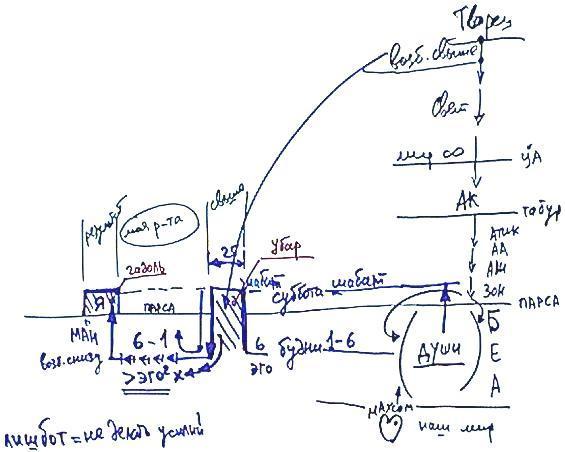 Творец
возб. свыше
Свет
мир ∞
ЦА
АК
табур
АТИК
АА
АИ
ЗОН
ПАРСА
Б
Е
А
ДУШИ
махсом
наш мир
свыше
моя р-та
25
убар
гадоль
Я
ПАРСА
суббота шабат
МАН
возб. снизу
6-1
>ЭГО²
6
эго
будни 1-6
лишбот = не делать усилий